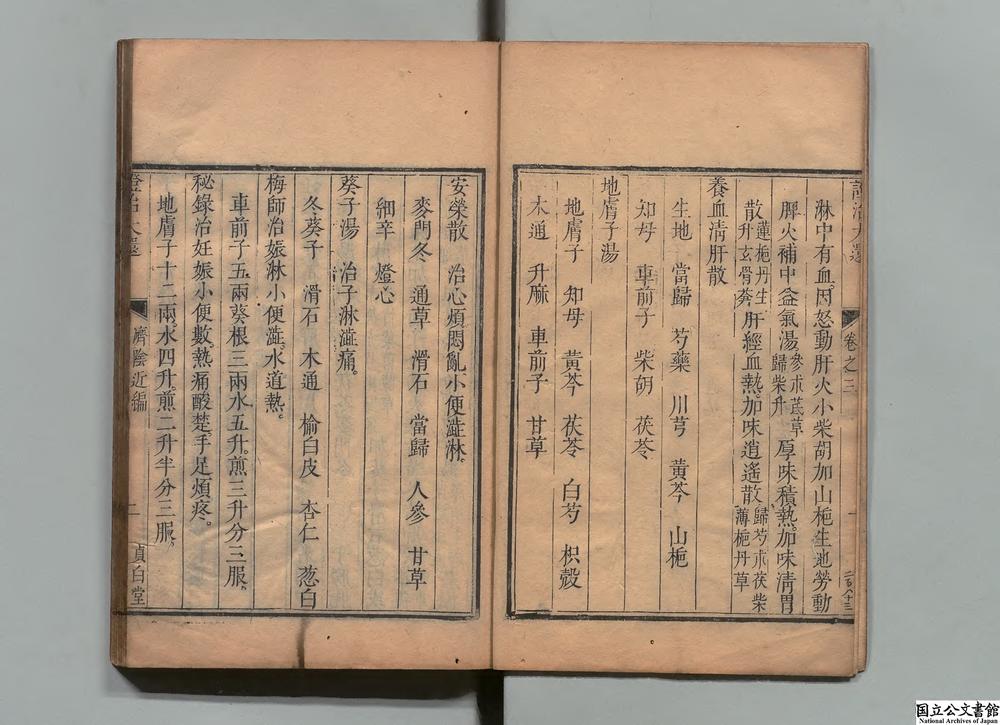 淋中有血因怒動肝火小柴胡加山梔生地勞動
脾火補中益氣湯參朮芪草歸柴升厚味積熱加味清胃
散蓮梔丹生升玄骨莾肝經血熱加味逍遙散歸芍朮茯柴薄梔丹草
養血清肝散
生地 當歸 芍藥 川芎 黃芩 山梔
知母 車前子 柴胡 茯苓
地膚子湯
地膚子 知母 黃芩 茯苓 白芍 枳殼
木通 升麻 車前子 甘草
卷之三
安榮散 治心煩悶亂小便澁淋。
麥門冬 通草 滑石 當歸 人參 甘草
細辛 燈心
葵子湯 治子淋澁痛。
冬葵子 滑石 木通 榆白皮 杏仁 葱白
梅師治娠淋小便澁。水道熱。
車前子五兩葵根三兩水五升。煎三升分三服。
秘錄治妊娠小便數。熱痛酸楚。手足煩疼。
地膚子十二兩。水四升。煎二升半分三服。
證治大還
濟陰近編
二
貞白堂
国立公文書館
National Archives of Japan